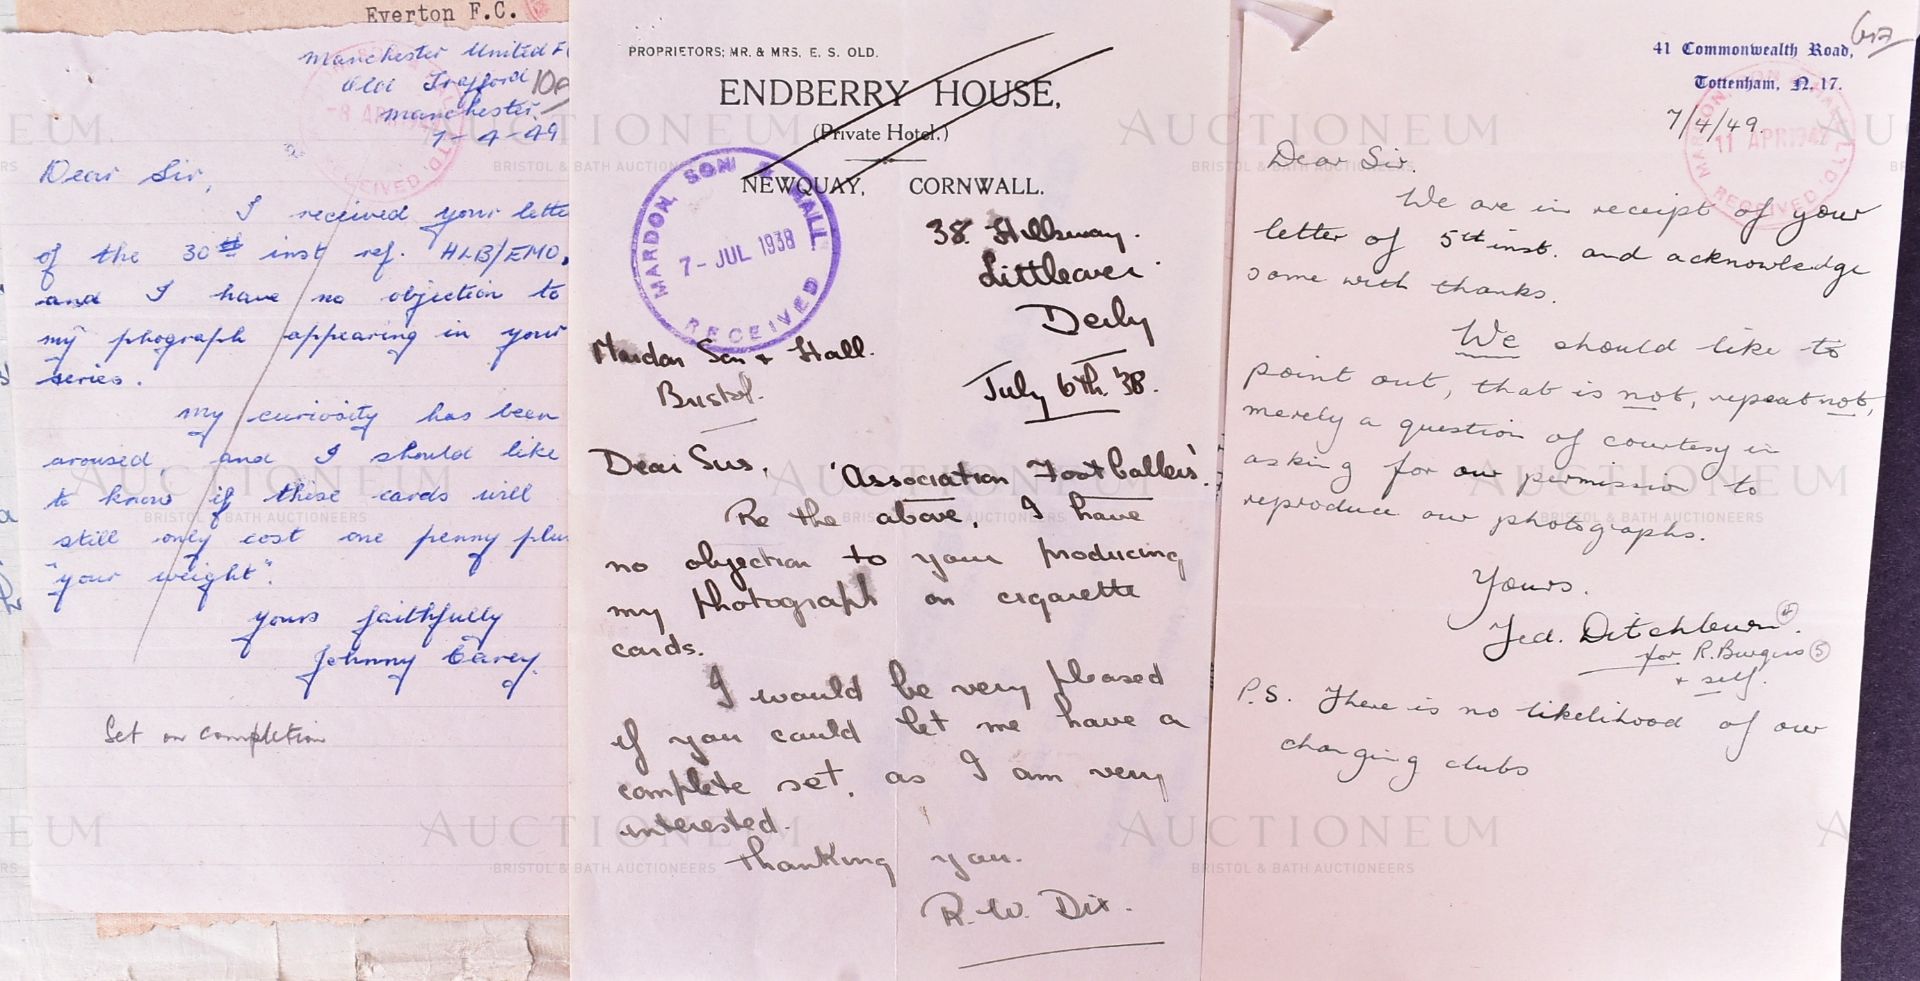 Everton F.C.
Manchester United F
Old Trafford
Manchester.
7-4-49
Dear Sir,
I received your lette
of the 30th inst ref. HLB/EMO,
and I have no objection to
my phograph appearing in your
series.
My curiosity has been
aroused, and I should like
to know if these cards will
still only cost one penny plus
"your weight".
Yours faithfully
Johnny Carey.
Set on completion
8 APR
RECEIVED
PROPRIETORS: MR. & MRS. E. S. OLD.
ENDBERRY HOUSE,
(Private Hotel.)
NEWQUAY, CORNWALL.
MARDON, SON & HALL
7 - JUL 1938
RECEIVED
38. Hillsway.
Littleover.
Derby
Mardon Son & Hall.
Bristol.
July 6th. '38.
Dear Sirs,
'Association Footballers'.
Re the above, I have
no objection to your producing
my photograph on cigarette
cards.
I would be very pleased
if you could let me have a
complete set, as I am very
interested.
Thanking you.
R. W. Dix.
41 Commonwealth Road,
Tottenham, N. 17.
7/4/49.
MARDON, SON & HALL LTD.
11 APR 194
RECEIVED
Dear Sir.
We are in receipt of your
letter of 5th inst. and acknowledge
same with thanks.
We should like to
point out, that is not, repeat not,
merely a question of courtesy in
asking for our permission to
reproduce our photographs.
Yours.
Ted. Ditchburn. 4
for R. Burgess 5
+ self.
P.S. There is no likelihood of our
changing clubs
AUCTIONEUM
BRISTOL & BATH AUCTIONEERS